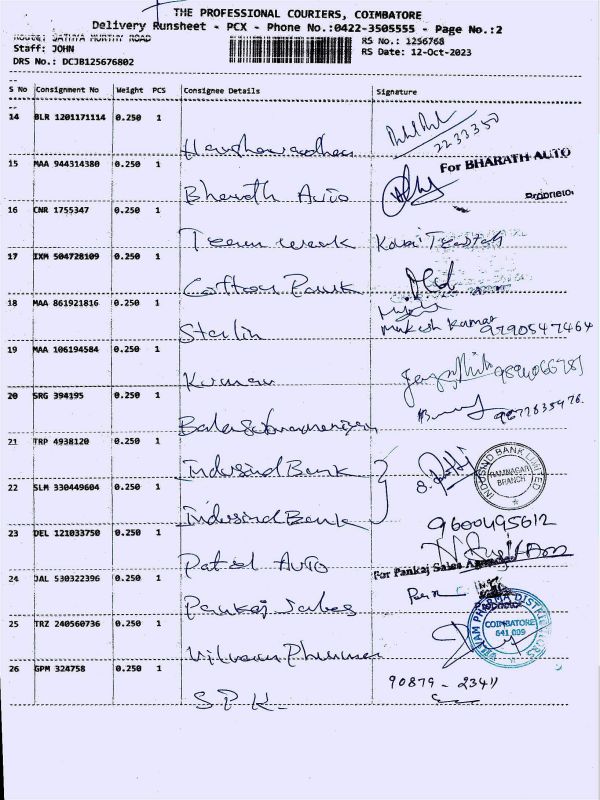 THE PROFESSIONAL COURIERS, COIMBATORE
Delivery Runsheet - PCX - Phone No.:0422-3505555 - Page No.:2
Route: SATHYA MURTHY ROAD
RS No.: 1256768
Staff: JOHN
RS Date: 12-Oct-2023
DRS No.: DCJB125676802
S No Consignment No Weight PCS Consignee Details Signature
14 BLR 1201171114 0.250 1
2233350
15 MAA 944314380 0.250 1
For BHARATH AUTO
Bharath Auto
Proprietor
16 CNR 1755347 0.250 1
Team work
17 IXM 504728109 0.250 1
Cotton Park
18 MAA 861921816 0.250 1
Starlin Mukesh Kumar 9790547464
19 MAA 106194584 0.250 1
Kumar
20 SRG 394195 0.250 1
Balasubramaniyan
21 TRP 4938120 0.250 1
Indusind Bank
INDUSIND BANK LIMITED
RAMNAGAR
BRANCH
22 SLM 330449604 0.250 1
Indusind Bank 9600495612
23 DEL 121033750 0.250 1
Patel Auto
For Pankaj Sales Agencies
24 JAL 530322396 0.250 1
Pankaj Sales
Proprietor
25 TRZ 240560736 0.250 1
COIMBATORE
641 009
26 GPM 324758 0.250 1
90879-23411
S P K-